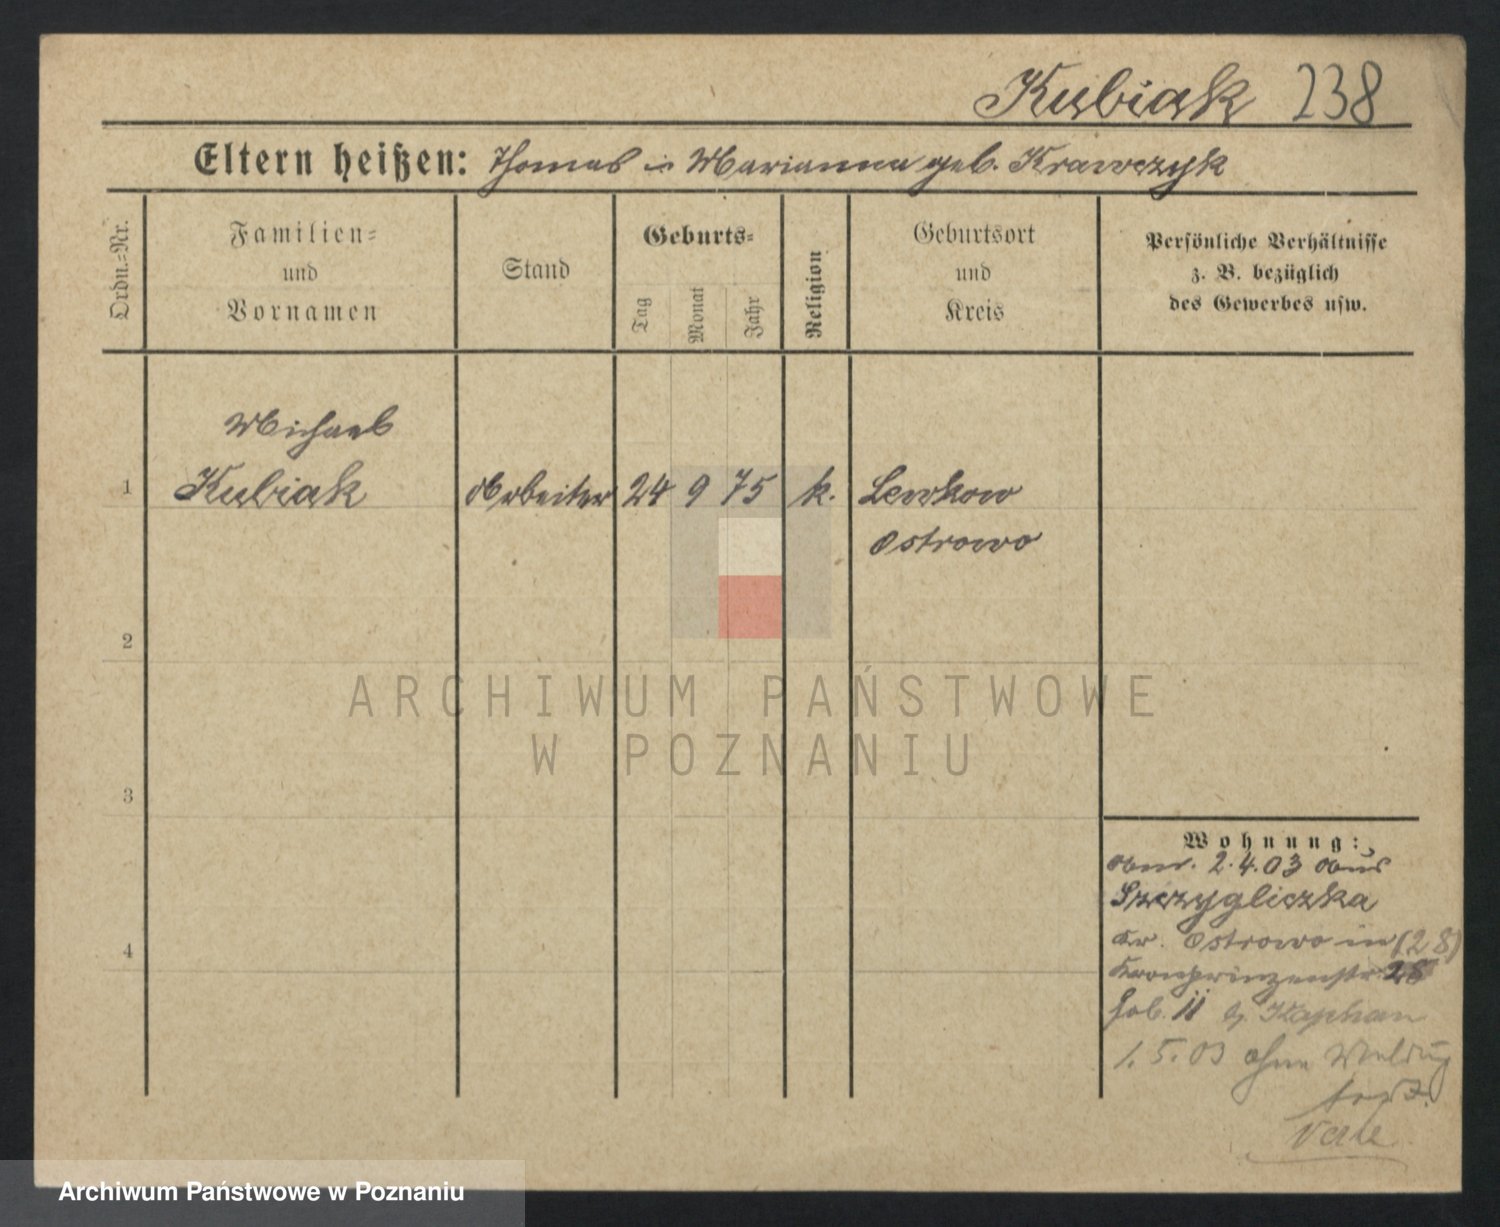 Kubiak 238
Eltern heißen: Thomas u Marianna geb. Krawczyk
Ordn.-Nr.
Familien-
und
Vornamen
Stand
Geburts-
Tag
Monat
Jahr
Religion
Geburtsort
und
Kreis
Persönliche Verhältnisse
z. B. bezüglich
des Gewerbes usw.
Michael
1 Kubiak Arbeiter 24 9 75 k. Lewkow
Ostrowo
2
3
4
Wohnung:
2.4.03 aus
Szczygliczka
Kr. Ostrowo in (28)
Kronprinzenstr. 28
II b/ Kaphan
1.5.03 ohne Meldung
ARCHIWUM PAŃSTWOWE
W POZNANIU
Archiwum Państwowe w Poznaniu